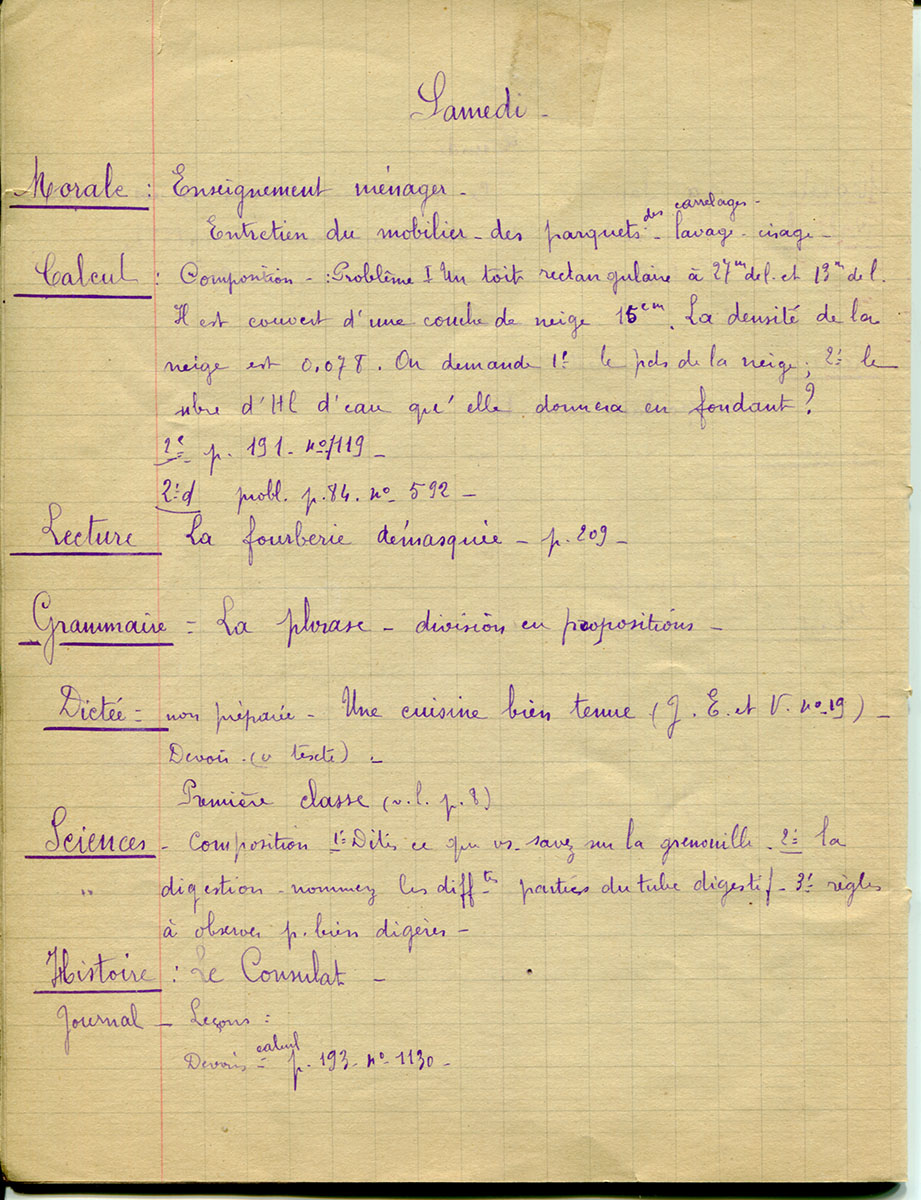 Samedi -
Morale : Enseignement ménager -
des carrelages -
Entretien du mobilier - des parquets - lavage - cirage -
Calcul : Composition - : Problème I Un toit rectangulaire à 27m de l. et 13m de l.
Il est couvert d'une couche de neige 15cm. La densité de la
neige est 0,078. On demande 1: le pds de la neige ; 2: le
nbre d'Hl d'eau qu'elle donnera en fondant ?
2e p. 191 - no 1119 -
2:d probl. p. 84. no 592 -
Lecture La fourberie démasquée - p. 209 -
Grammaire = La phrase - division en propositions -
Dictée = non préparée - Une cuisine bien tenue (J. E. et V. no 19) -
Devoir - (v texte) -
Première classe (v. l. p. 8)
Sciences - Composition 1: Dites ce que vs. savez sur la grenouille - 2: la
" digestion - nommez les difftes parties du tube digestif - 3: règles
à observer p. bien digérer -
Histoire : Le Consulat -
Journal - Leçons :
calcul
Devoirs = p. 193 - no 1130 -